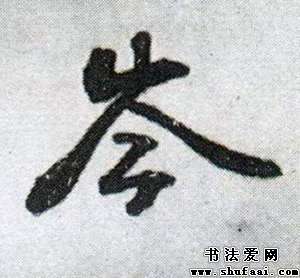 岑
书法爱网
www.shufaai.com